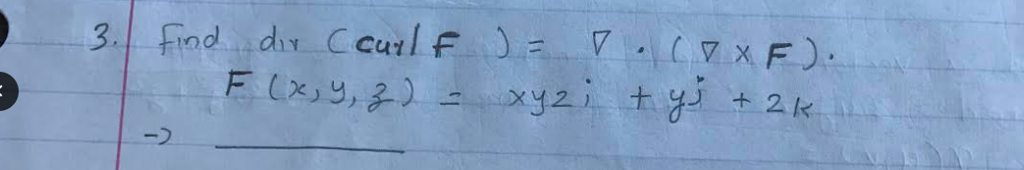 3. Find div (curl F ) = ∇ . ( ∇ × F ).
F (x, y, z) = xyzi + yj + zk
→